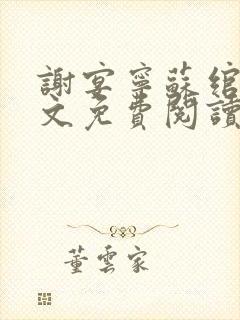 謝宴寧蘇綰
文免費閱讀
董雲家